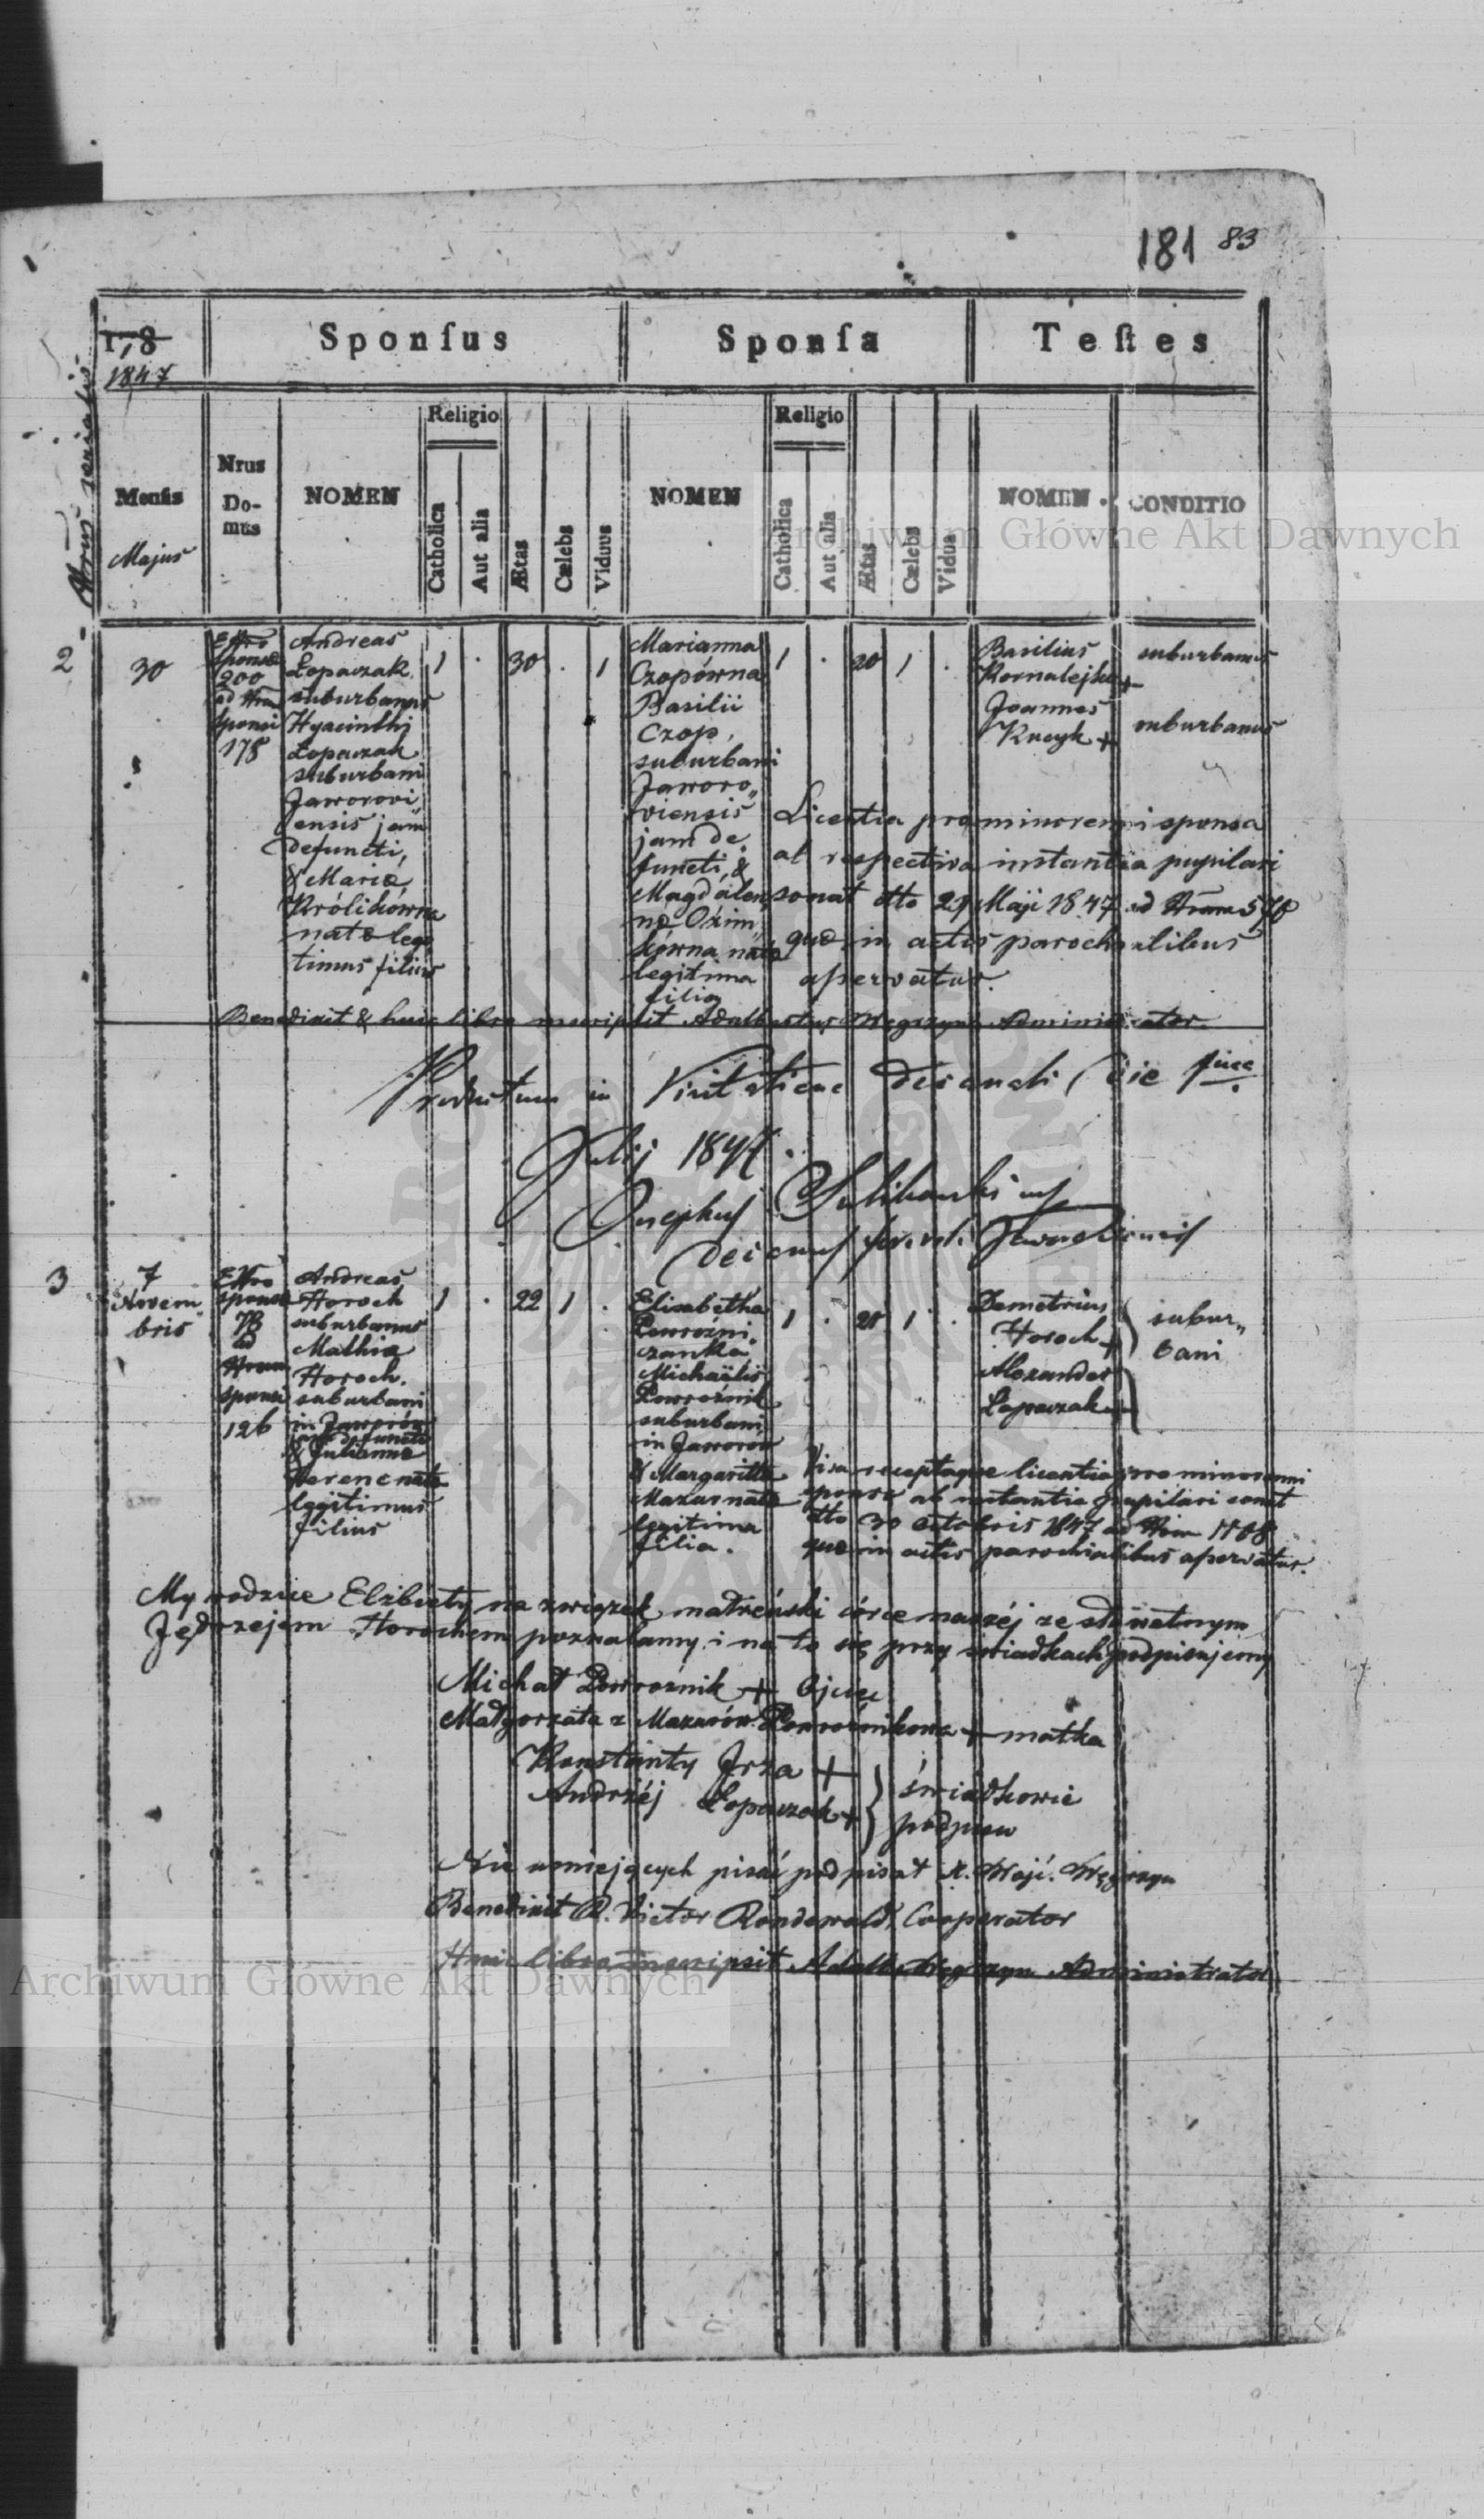 181 83
Sponſus Sponſa Teſtes
1847
Nrus serialis
Mensis
Majus
Nrus
Do-
mus
NOMEN
Religio
Catholica
Aut alia
Ætas
Cælebs
Viduus
NOMEN
Religio
Catholica
Aut alia
Ætas
Cælebs
Vidua
NOMEN
CONDITIO
Archiwum Główne Akt Dawnych
2
30
sponsæ
200
ad Nrum
sponsi
178
Andreas
Łopaczak
suburbanus
Hyacinthi
Łopaczak
suburbani
Jaworovi
ensis jam
defuncti,
& Maria
Królikówna
natæ legi
timus filius
1 . 30 . 1
Marianna
Czopówna
Basilii
Czop,
suburbani
Jaworo„
viensis
jam de„
functi, &
Magdale„
legitima
filia
1 . 20 1 .
Basilius
Joannes
Kucyk +
suburbanus
suburbanus
Licentia pro minorenni sponsa
ab respectiva instantia pupilari
sonat dtto 29 Maji 1847 ad Nrum
quæ in actis parochialibus
aſservatur.
Benedixit & huic libro inscripsit Adalbertus Węgrzyn Administrator
Productum in Visitatione Decanali die
Julij 1847.
Josephus
Decanus
3
7
Novem„
bris
sponsæ
78
ad
Nrum
sponsi
126
Andreas
Horoch
suburbanus
Mathiæ
Horoch.
suburbani
in Jaworów
jam defuncti
& Julianna
natæ
legitimus
filius
1 . 22 1 .
Elisabetha
Powroźni„
czanka
Michaëlis
Powroźnik
suburbani
in Jaworów
& Margaritta
Mazur natæ
legitima
filia.
1 . 20 1 .
Demetrius
Horoch +
Alexander
Łopaczak +
subur„
bani
Visa receptaque licentia pro minorenni
sponsa ab instantia pupilari sonat
dtto 30 octobris 1847 ad Nrum 1108
quæ in actis parochialibus aſservatur.
My rodzice Elżbiety na związek małżeński córce naszéj ze sławetnym
Jędrzejem Horochem pozwalamy i na to się przy świadkach podpisujemy
Michał Powroźnik + Ojciec
Małgorzata z Mazurów Powroźnikowa + matka
Konstanty Jrza +
Andrzéj Łopaczak +
świadkowie
podpisu
Nie umiejących pisać podpisał X. Wojć. Węgrzyn
Benedixit R. Victor Rondewald, Cooperator
Huic libro inscripsit Adalb. Węgrzyn Administrator
Archiwum Główne Akt Dawnych